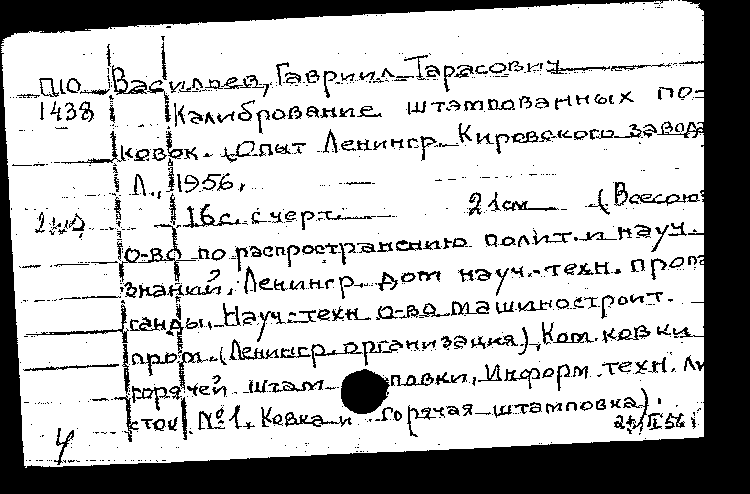 П10 Васильев, Гавриил Тарасович
1438 Калибрование штампованных по-
ковок. (Опыт Ленингр. Кировского завода
Л., 1956.
16с. с черт. 21см (Всесоюз
о-во по распространению полит. и науч.
знаний. Ленингр. дом науч.-техн. пропа
ганды. Науч.-техн о-во машиностроит.
пром. (Ленингр. организация), Ком. ковки
горячей штамповки. Информ. техн. ли
сток №1. Ковка и горячая штамповка).
4